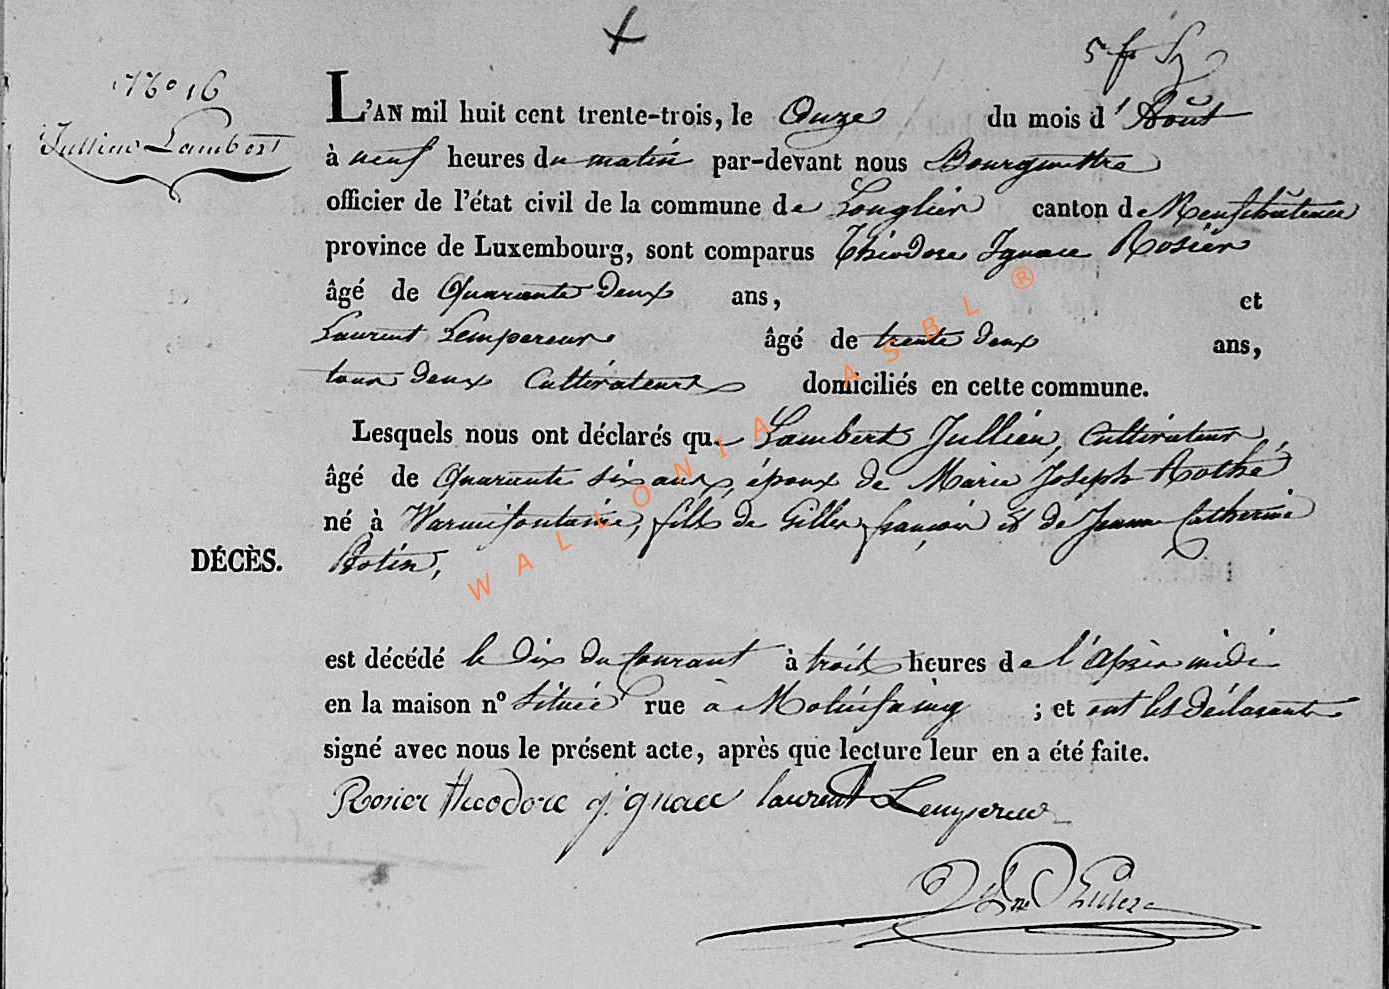 5 f
N° 16
Jullien Lambert
L'AN mil huit cent trente-trois, le Onze du mois d'Août
à neuf heures du matin par-devant nous Bourgmettre
officier de l'état civil de la commune de Longlier canton de Neufchâteau
province de Luxembourg, sont comparus Théodore Ignace Rosier
âgé de Quarante deux ans, et
Laurent Lempereur âgé de trente deux ans,
tous deux Cultivateurs domiciliés en cette commune.
Lesquels nous ont déclarés que Lambert Jullien, Cultivateur,
âgé de Quarante six ans, époux de Marie Joseph Rothé
né à Warmifontaine, fils de Gilles françois et de Jeanne Catherine
DÉCÈS. Rotin,
est décédé le dix du Courant à trois heures de l'Après midi
en la maison n° située rue à Molinfaing ; et ont les déclarants
signé avec nous le présent acte, après que lecture leur en a été faite.
Rosier theodore ignace laurent Lempereur
WALLONIA ASBL ®